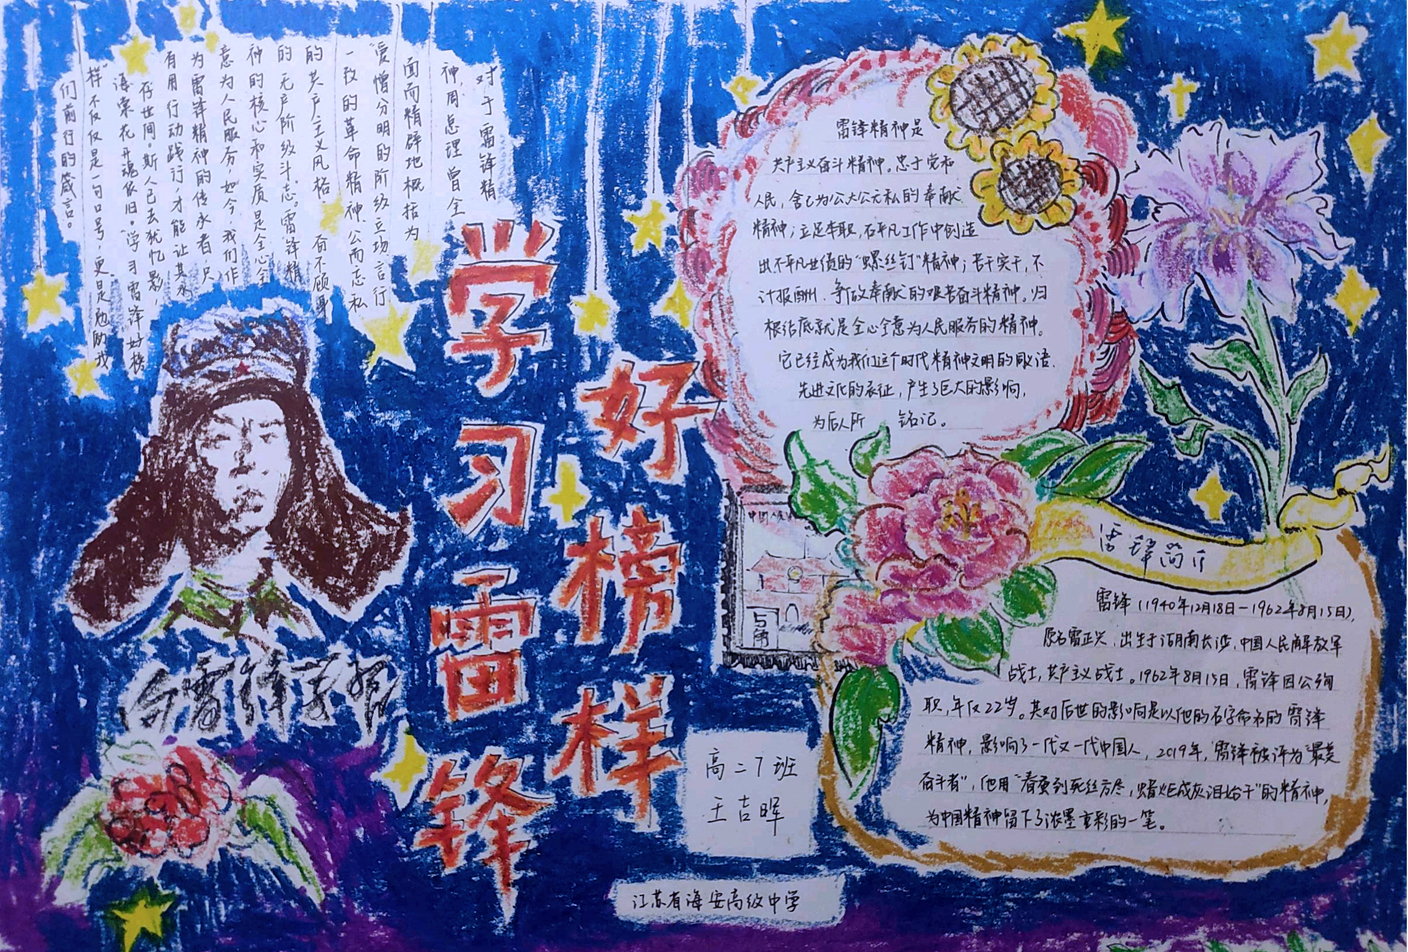 学习雷锋
好榜样
对于雷锋精
神周恩理曾全
面而精辟地概括为
“爱憎分明的阶级立场、言行
一致的革命精神、公而忘私
的共产主义风格、奋不顾身
的无产阶级斗志。雷锋精
神的核心和实质是全心全
意为人民服务，如今，我们作
为雷锋精神的传承者，只
有用行动践行，才能让其永
存世间。斯人已去犹忆影，
海棠花开魂依旧。“学习雷锋好榜
样”不仅仅是一句口号，更是勉励我
们前行的箴言。
雷锋精神是
共产主义奋斗精神。忠于党和
人民，舍己为公大公无私的奉献
精神；立足本职，在平凡工作中创造
出不平凡业绩的“螺丝钉”精神；苦干实干，不
计报酬、争做奉献的艰苦奋斗精神。归
根结底就是全心全意为人民服务的精神。
它已经成为我们这个时代精神文明的同义语、
先进文化的表征，产生了巨大的影响，
为后人所 铭记。
向雷锋学习
中国人民
雷锋简介
雷锋（1940年12月18日—1962年8月15日），
原名雷正兴，出生于湖南长沙，中国人民解放军
战士，共产主义战士。1962年8月15日，雷锋因公殉
职，年仅22岁。其对后世的影响是以他的名字命名的雷锋
精神，影响了一代又一代中国人，2019年，雷锋被评为“最美
奋斗者”，他用“春蚕到死丝方尽，蜡炬成灰泪始干”的精神，
为中国精神留下了浓墨重彩的一笔。
高二7班
王吉晖
江苏省海安高级中学